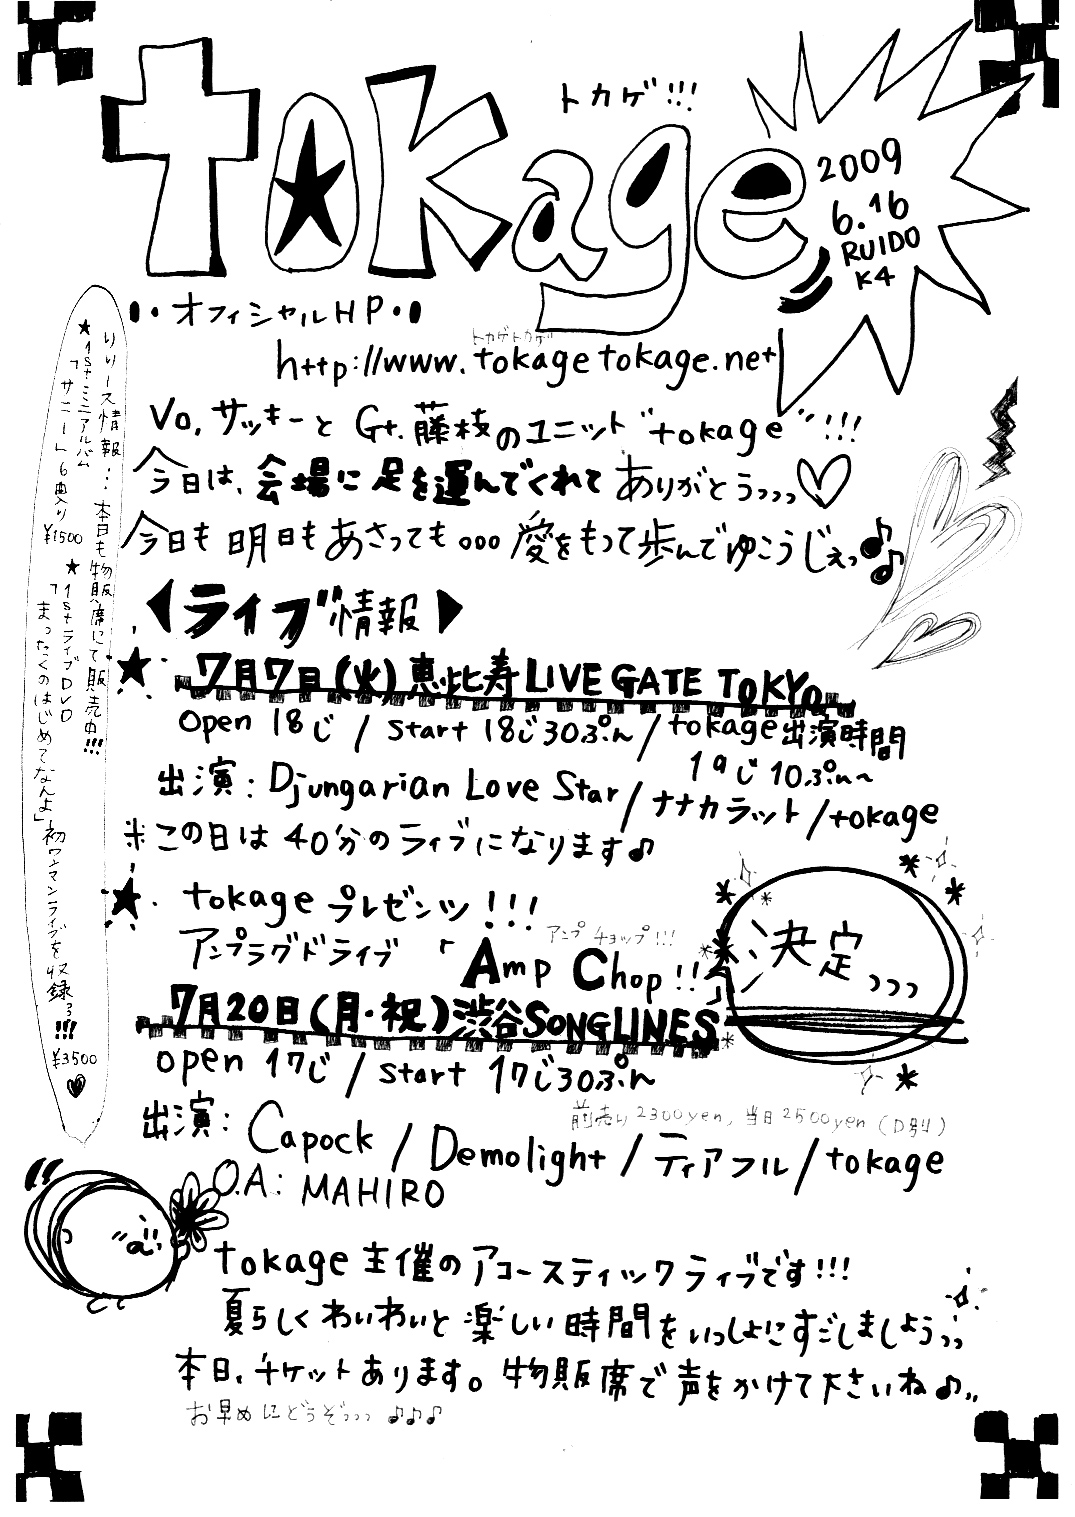 トカゲ!!!
tokage
2009
6.16
RUIDO
K4
••オフィシャルHP••
トカゲトカゲ
http://www.tokagetokage.net
Vo.サッキーとGt.藤枝のユニット"tokage"!!!
今日は、会場に足を運んでくれてありがとうっっっ♡
今日も明日もあさっても…愛をもって歩んでゆこうじぇっ♫
【ライブ情報】
★7月7日(火)恵比寿LIVE GATE TOKYO
open 18じ/start 18じ30ぷん/tokage出演時間
19じ10ぷん〜
出演:Djungarian Love Star/ナナカラット/tokage
※この日は40分のライブになります♪
★tokageプレゼンツ!!!
アンプチョップ!!!
アンプラグドライブ「Amp Chop!!」
決定っっっ
7月20日(月・祝)渋谷SONGLINES
open 17じ/start 17じ30ぷん
前売り2300yen,当日2500yen(D別)
出演:Capock/Demolight/ティアフル/tokage
O.A:MAHIRO
tokage主催のアコースティックライブです!!!
夏らしくわいわいと楽しい時間をいっしょにすごしましょうっっ
本日、チケットあります。物販席で声をかけて下さいね♪
お早めにどうぞっっっ♪♪♪
リリース情報…本日も物販席にて販売中!!!
★1stミニアルバム
「サニー」6曲入り
¥1500
★1stライブDVD
「まったくのはじめてなんよ」初ワンマンライブを収録っ!!!
¥3500